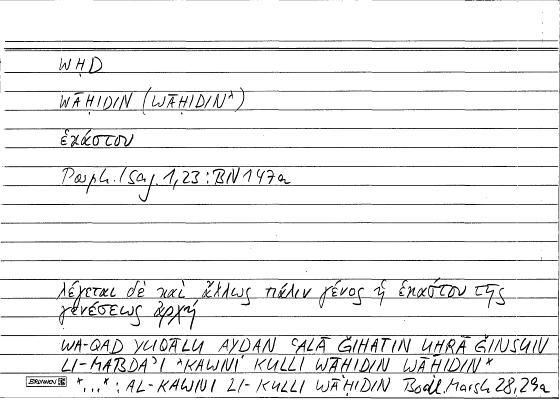 WḤD
WĀḤIDIN (WĀḤIDIN*)
ἑκάστου
Porph. Isag. 1,23 : BN 147a
λέγεται δὲ καὶ ἄλλως πάλιν γένος ἡ ἑκάστου τῆς
γενέσεως ἀρχή
WA-QAD YUQĀLU AYḌAN ʿALĀ ǦIHATIN UḪRĀ ǦINSUN
LI-MABDAʾI *KAWNI KULLI WĀḤIDIN WĀḤIDIN*
*...* : AL-KAWNI LI-KULLI WĀḤIDIN Bodl. Marsh 28, 29a
BRUNNEN